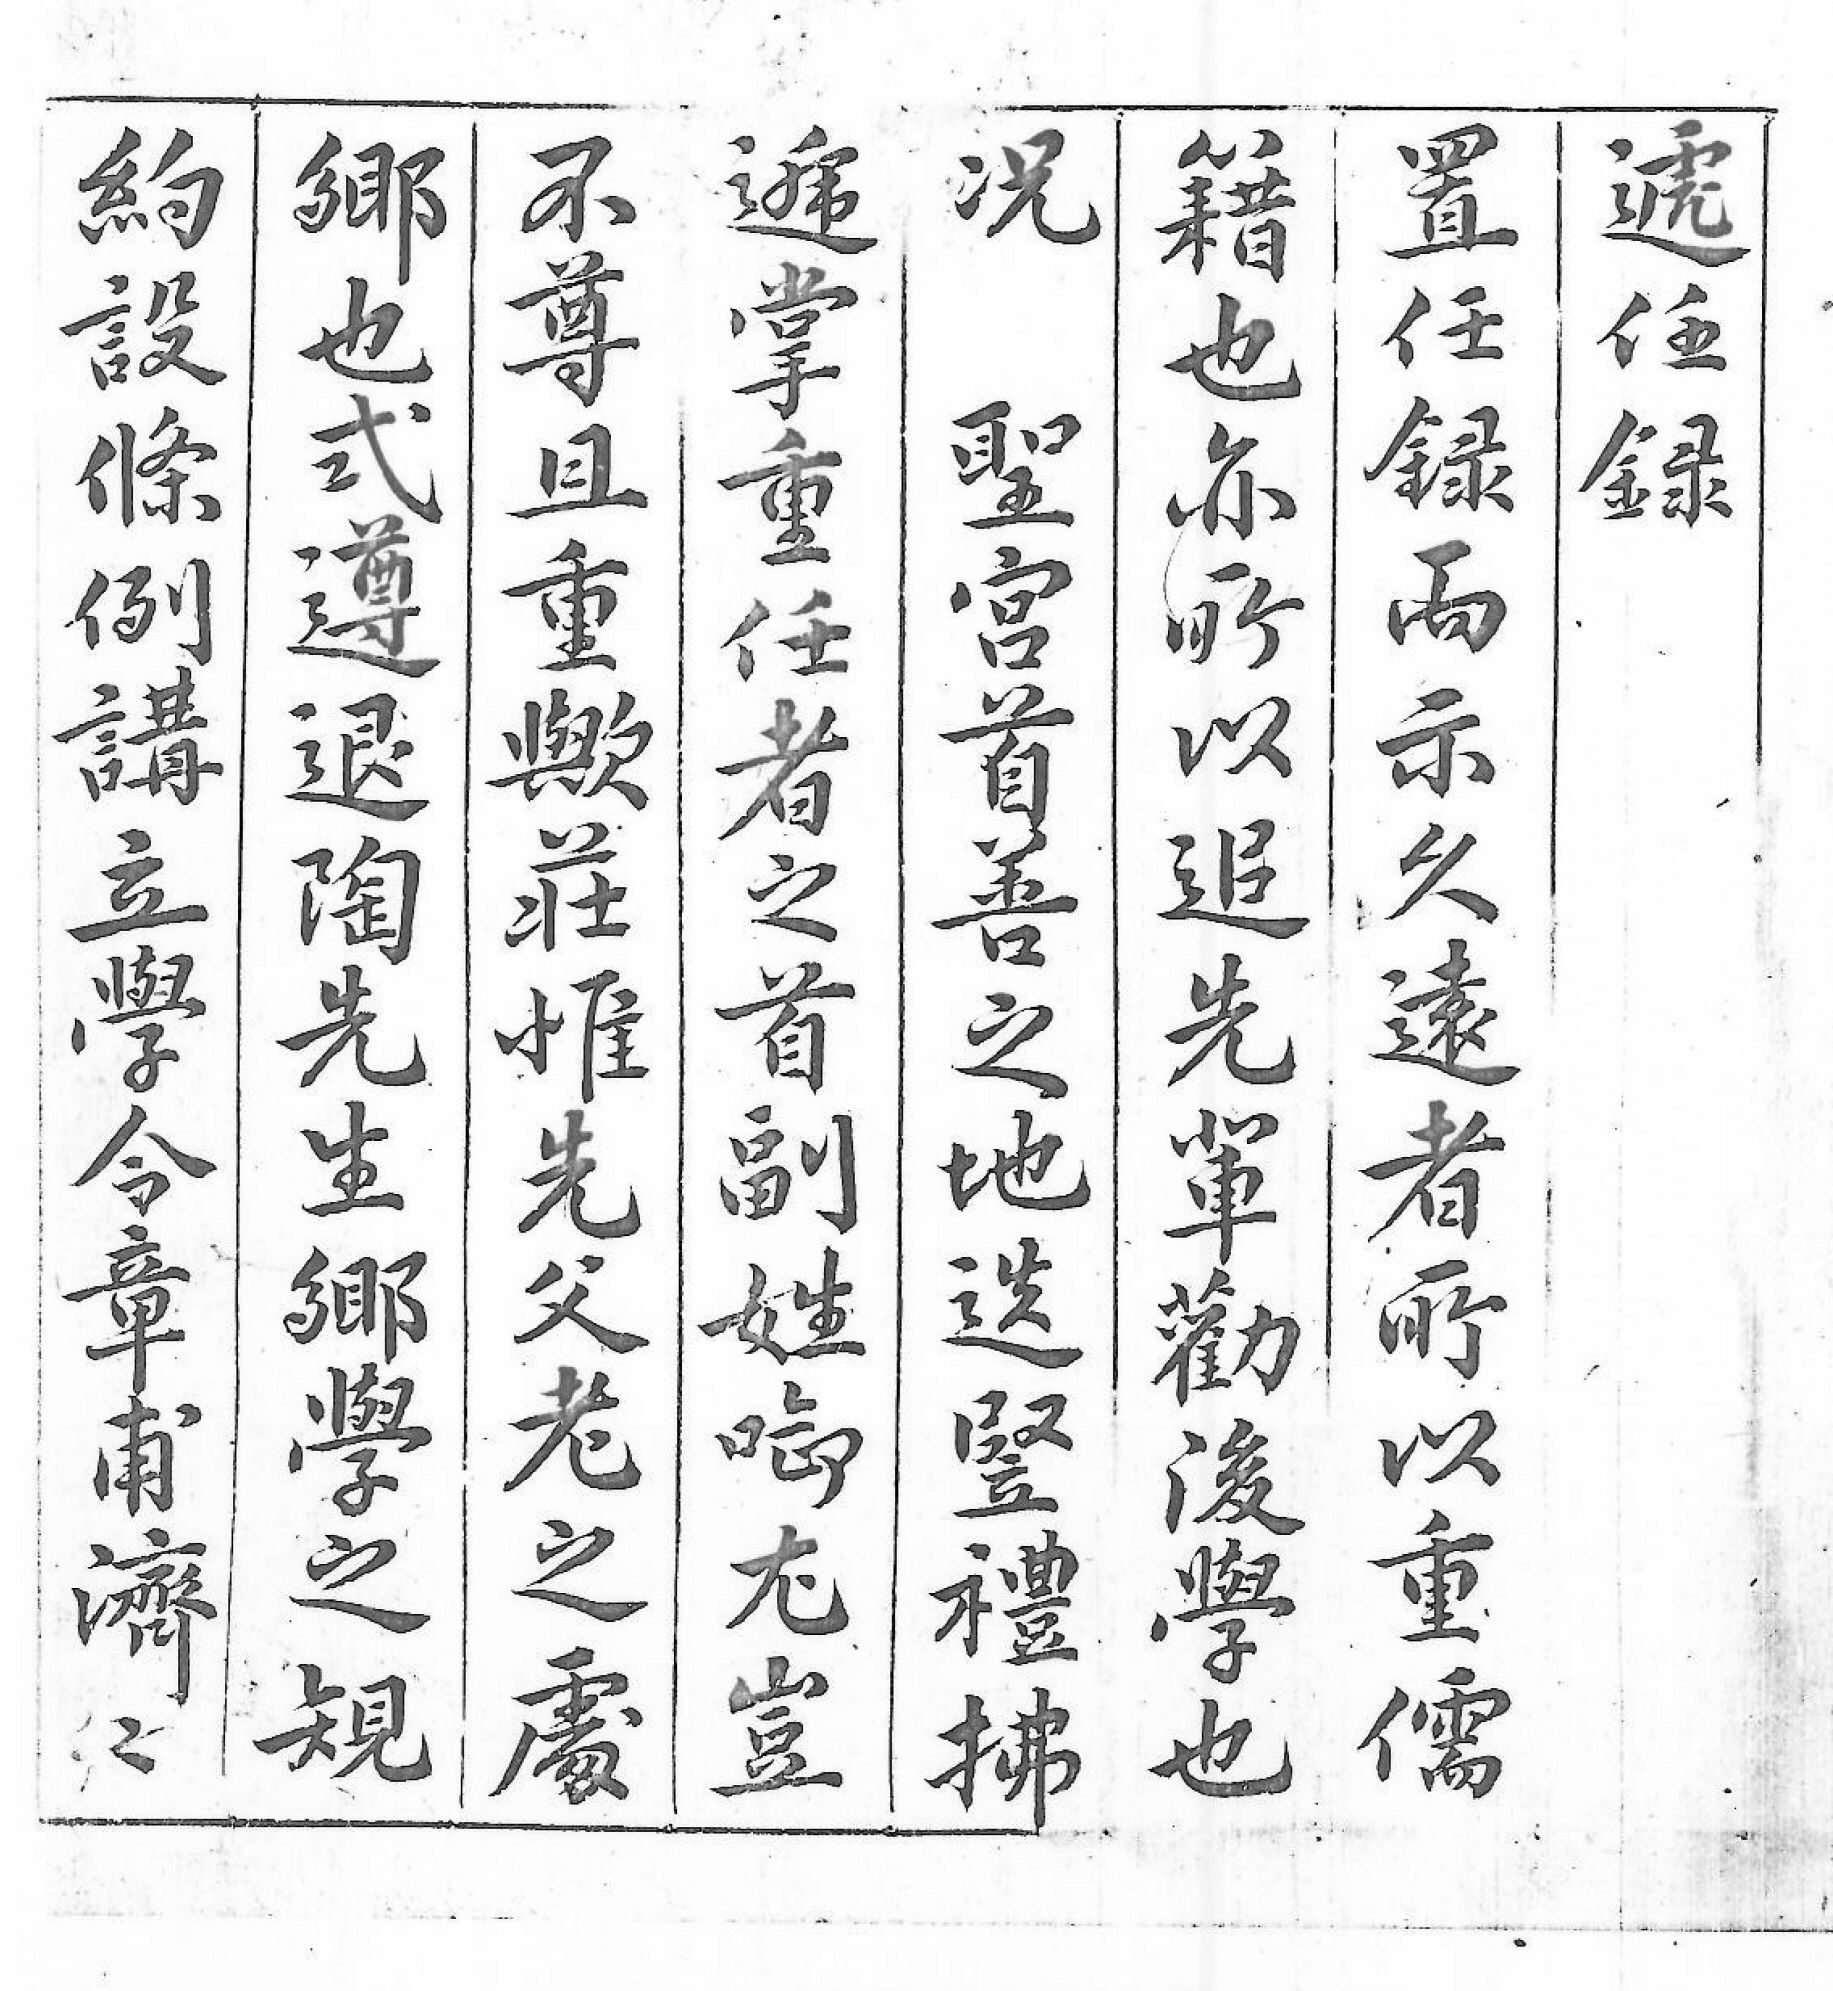 遞任録
置任録而示久遠者所以重儒
籍也亦所以追先軰勸後學也
況 聖宮首善之地迭竪禮拂
遞掌重任者之首副姓啣尤豈
不尊且重歟莊惟先父老之處
鄉也式遵退陶先生鄉學之規
約設條例講立學令章甫濟〻